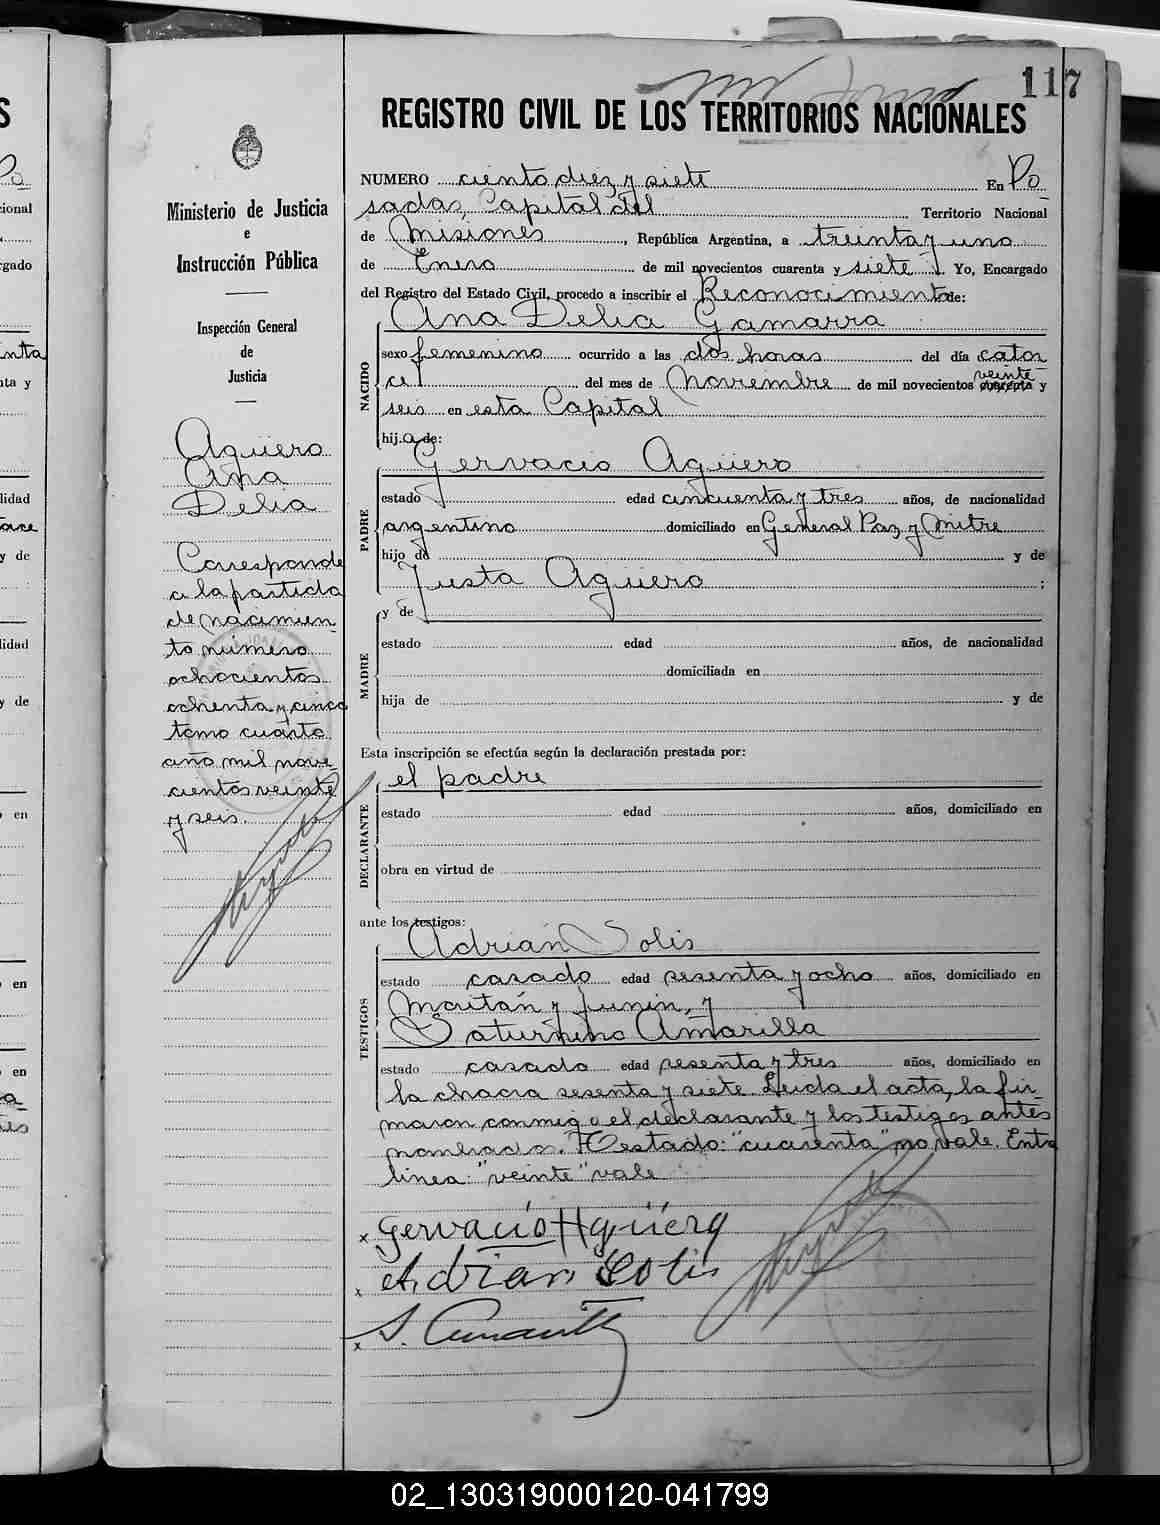 117
REGISTRO CIVIL DE LOS TERRITORIOS NACIONALES
NUMERO ciento diez y siete En Po
sadas, Capital del Territorio Nacional
de Misiones, República Argentina, a treinta y uno
de Enero de mil novecientos cuarenta y siete. Yo, Encargado
del Registro del Estado Civil, procedo a inscribir el Reconocimiento de:
NACIDO
Ana Delia Gamarra
sexo femenino ocurrido a las dos horas del día cator
veinte
ce del mes de Noviembre de mil novecientos cuarenta y
seis en esta Capital
hija de:
PADRE
Gervacio Agüero
estado edad cincuenta y tres años, de nacionalidad
argentino domiciliado en General Paz y Mitre
hijo de y de
Justa Agüero ;
MADRE
y de
estado edad años, de nacionalidad
domiciliada en
hija de y de
Esta inscripción se efectúa según la declaración prestada por:
DECLARANTE
el padre
estado edad años, domiciliado en
obra en virtud de
ante los testigos:
TESTIGOS
Adrián Solis
estado casado edad sesenta y ocho años, domiciliado en
Maitán y Junin, y
Saturnino Amarilla
estado casado edad sesenta y tres años, domiciliado en
la chacra sesenta y siete. Leida el acta, la fir
maron conmigo el declarante y los testigos antes
nombrados. Testado: "cuarenta" no vale. Entre
linea: "veinte" vale
x Gervacio Agüero
x Adrian Solis
x S. Amarilla
Ministerio de Justicia
e
Instrucción Pública
Inspección General
de
Justicia
Agüero
Ana
Delia
Corresponde
a la partida
de nacimien
to número
ochocientos
ochenta y cinco
tomo cuarto
año mil nove
cientos veinte
y seis.
S
Po
cional
gado
nta
nta y
lidad
y de
lidad
y de
en
en
en
02_130319000120-041799